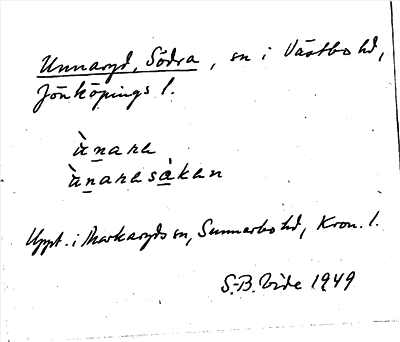 Unnaryd, Södra, sn i Västbo hd,
Jönköpings l.
ùnara
ùnarasåkan
Uppt. i Markaryds sn, Sunnerbo hd, Kron. l.
S.-B. Vide 1949